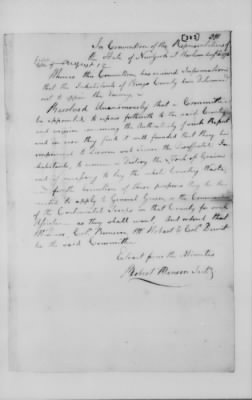 [323]
In Convention of the Representatives of
the State of New York at Harlem
August 10
Whereas this Convention has received Information
that the Inhabitants of Kings County have determined
not to oppose the Enemy
Resolved Unanimously that a Committee
be appointed to repair forthwith to the said County
and inquire concerning the Authenticity of such Report
and in case they find it well founded that they be
empowered to disarm and secure the disaffected In-
habitants, to remove or destroy the Stock of Grain
and if necessary to lay the whole Country Waste
execution of these purposes they be di-
rected to apply to General Greene or the Commander
of the Continental Troops in that County for such
Assistance as they shall want. And ordered that
be the said Committee
Extract from the Minutes
Robert Benson Secry